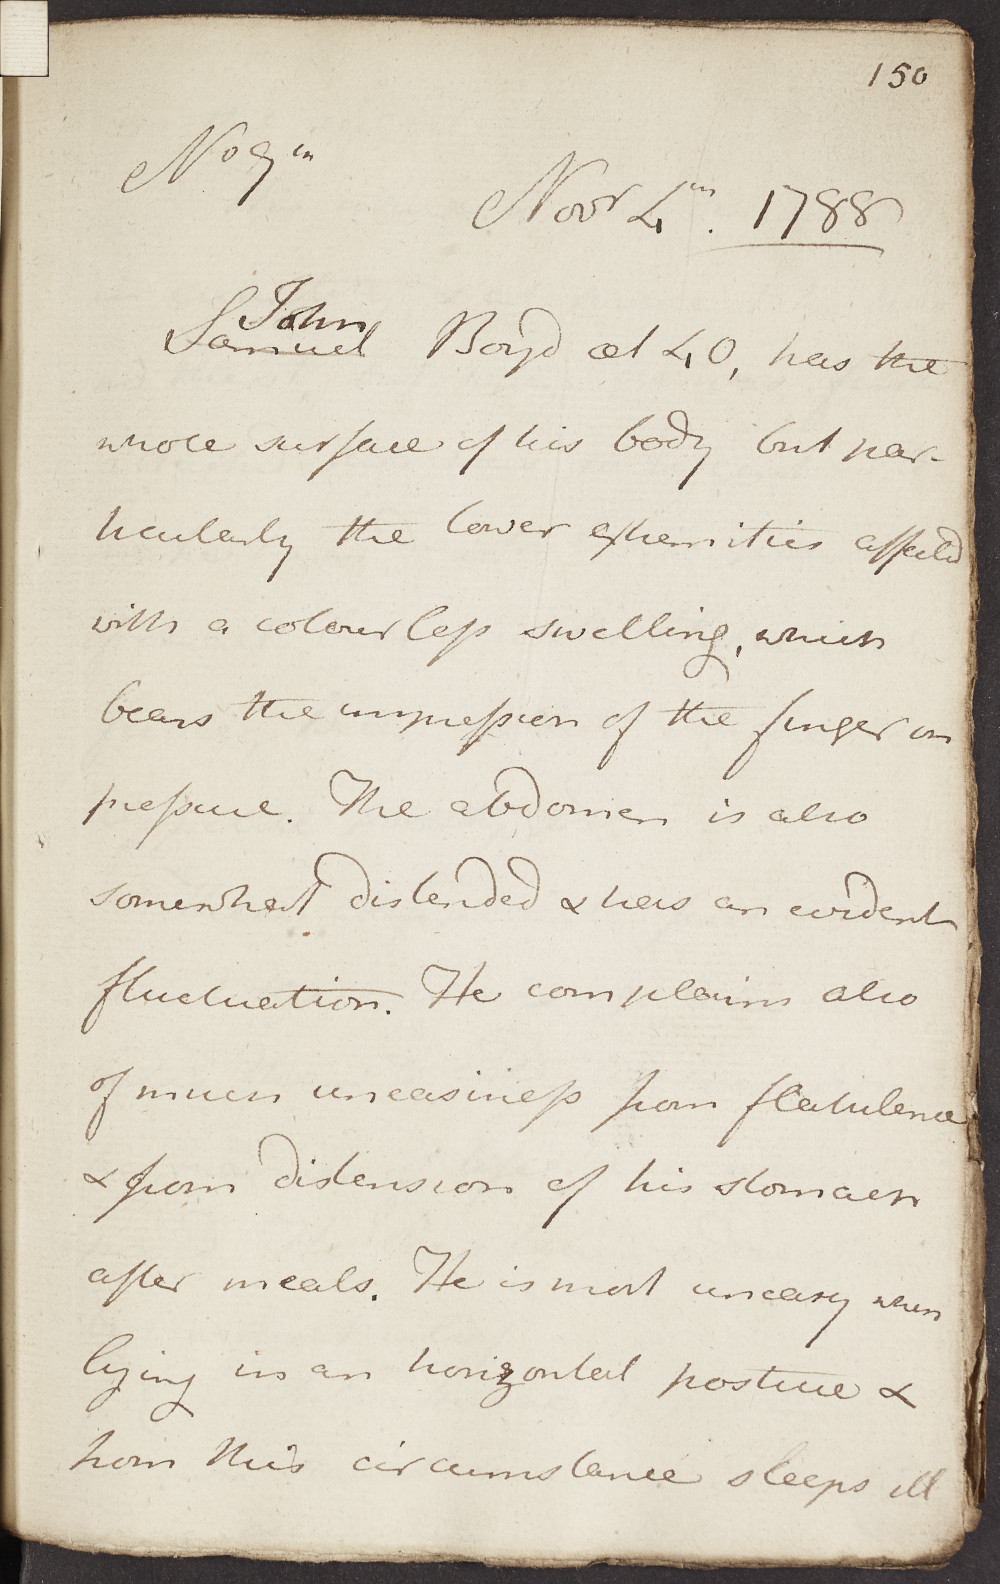 150
No 9th
Novr 4th. 1788
John
Samuel Boyd æt 40, has the
whole surface of his body but par-
ticularly the lower extremities affected
with a colourless swelling, which
bears the impression of the finger on
pressure. The abdomen is also
somewhat distended & has an evident
fluctuation. He complains also
of much uneasiness from flatulence
& from distension of his stomach
after meals. He is most uneasy when
lying in an horizontal posture &
from this circumstance sleeps ill